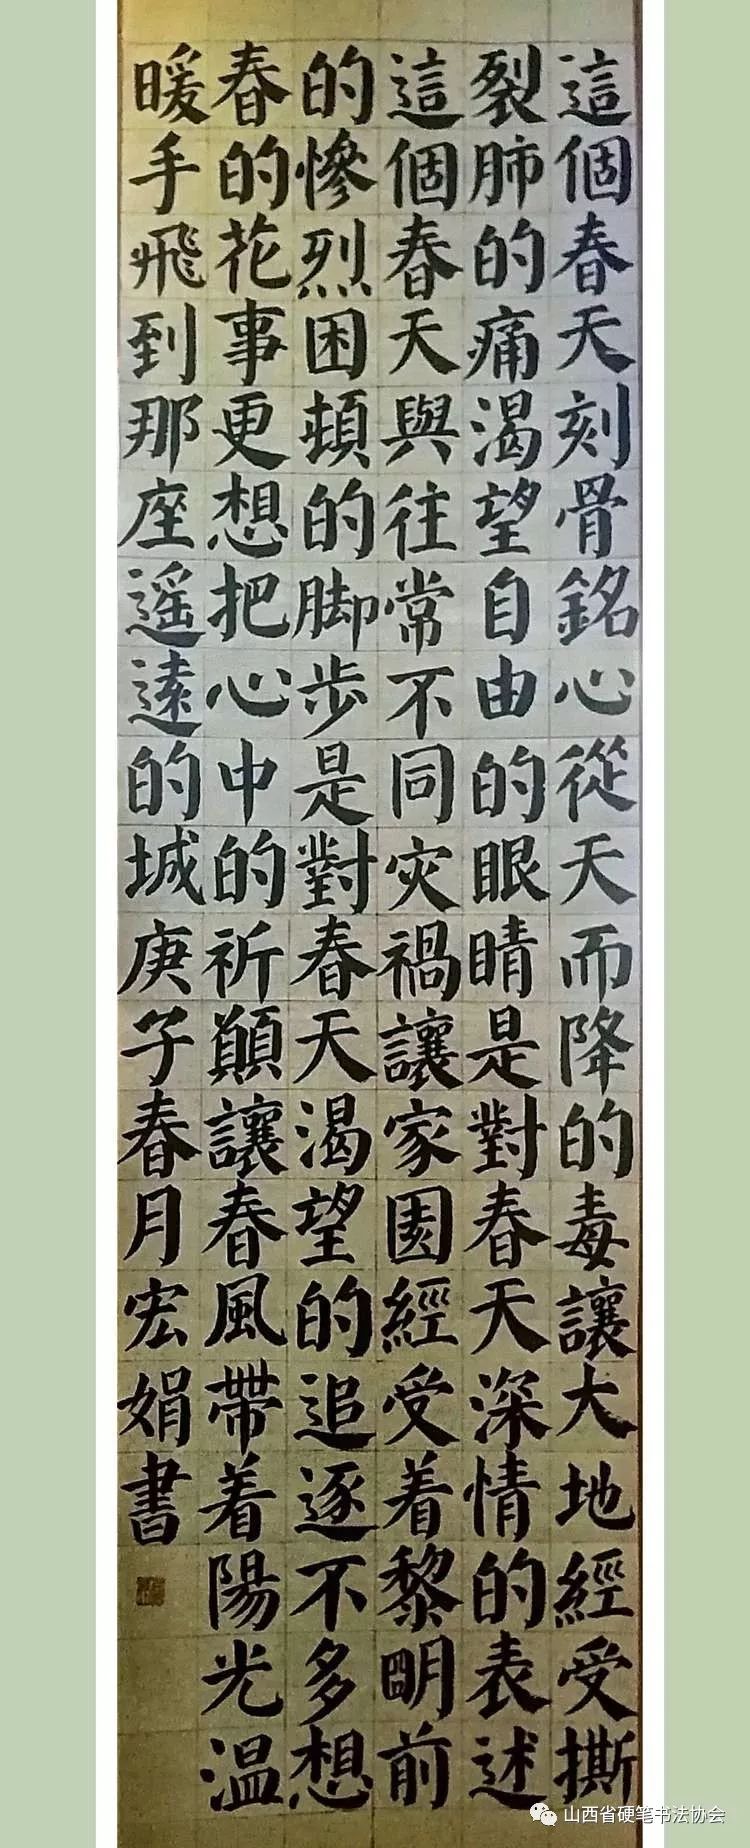 這個春天刻骨銘心從天而降的毒讓大地經受撕
裂肺的痛渴望自由的眼睛是對春天深情的表述
這個春天與往常不同灾禍讓家園經受着黎明前
的慘烈困頓的脚步是對春天渴望的追逐不多想
春的花事更想把心中的祈顛讓春風帶着陽光温
暖手飛到那座遥遠的城庚子春月宏娟書
山西省硬笔书法协会